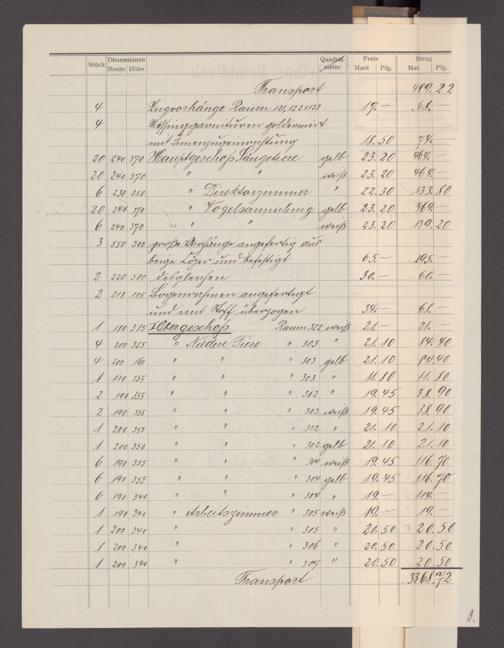 Stück Dimensionen Breite Höhe Quadratmeter Preis Mark Pfg. Betrag Mark Pfg.
Transport 489. 22
4 Zugvorhänge Raum 120, 122 u 123 17.— 68.—
4 Messinggarnituren goldvernirt
mit Leinenzugeinrichtung 18.50 74.—
20 240 370 Hauptgeschoß Säugetiere gelb 23.20 464.—
20 240 370 " " weiß 23.20 464.—
6 230 350 " Direktorzimmer " 22.30 133.80
20 240 370 " Vogelsammlung gelb 23.20 464.—
6 240 370 " " weiß 23.20 139.20
3 550 500 große Vorhänge angefertigt aus
beige Köper und befestigt 65.— 195.—
2 220 500 desgleichen 30.— 60.—
2 Bogenrahmen angefertigt
und mit Stoff überzogen 34.— 68.—
1 180 385 I Obergeschoß Raum 322 weiß 21.— 21.—
4 200 355 " Niedere Tiere " 303 " 21.10 84.40
4 200 " " " 303 gelb 21.10 84.40
1 110 355 " " " 303 " 11.80 11.80
2 190 355 " " " 302 " 19.45 38.90
2 190 355 " " " 302 weiß 19.45 38.90
1 200 355 " " " 302 " 21.10 21.10
1 200 350 " " " 302 gelb 21.10 21.10
6 190 355 " " " 304 weiß 19.45 116.70
6 190 355 " " " 304 gelb 19.45 116.70
6 190 340 " " " 304 " 19.— 114.—
1 190 340 " Arbeitszimmer " 305 weiß 19.— 19.—
1 200 340 " " " 305 " 20.50 20.50
1 200 340 " " " 306 " 20.50 20.50
1 200 340 " " " 307 " 20.50 20.50
Transport 3368.72